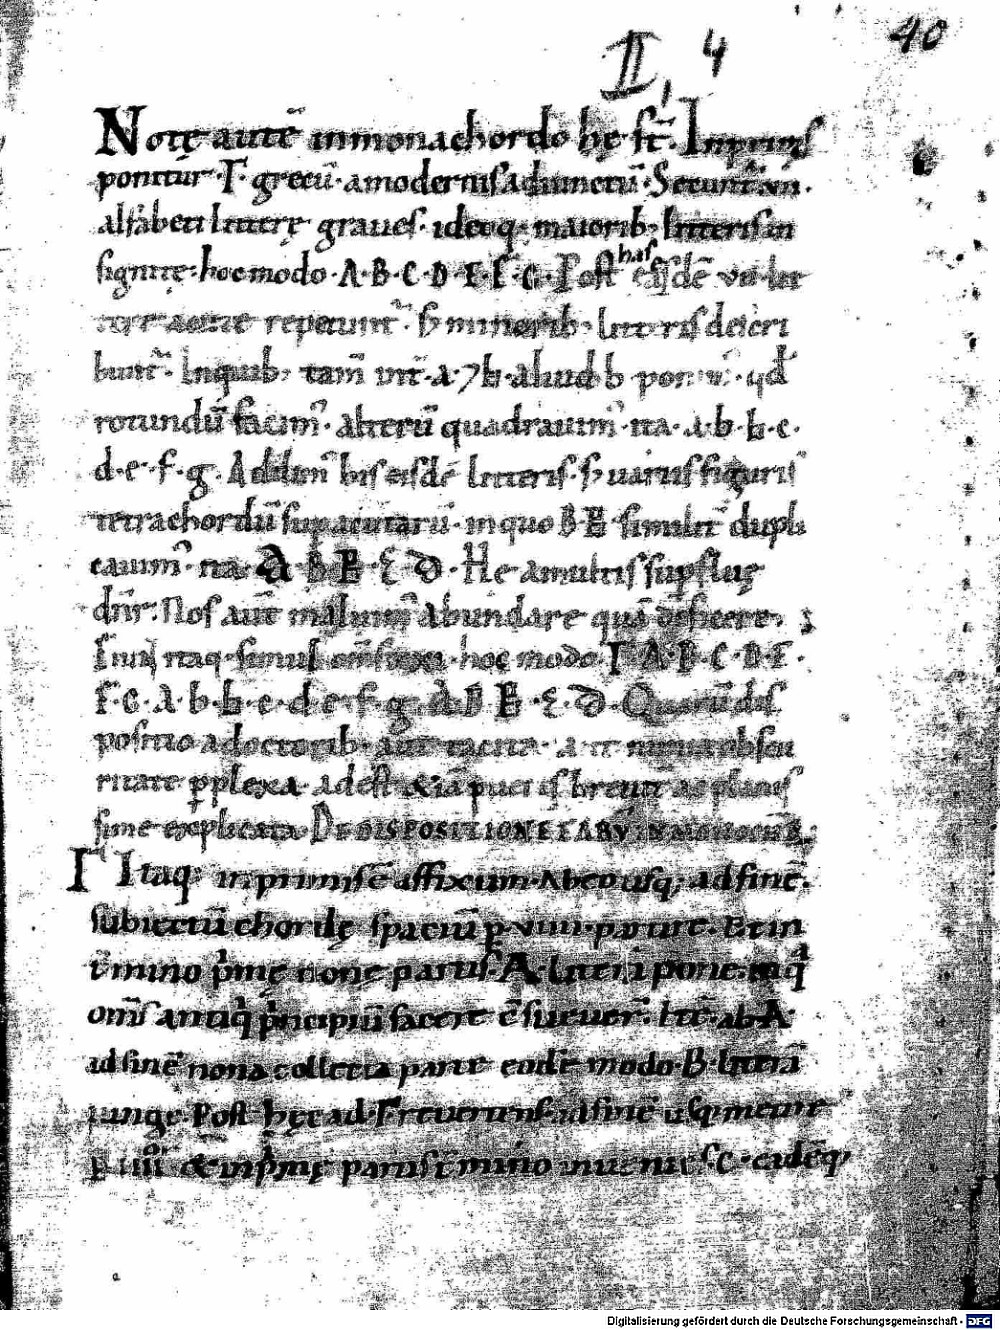 II, 4 40
Notę autē inmonachordo hę st̄. Inprimis
ponitur · Γ · grecū · amodernis adiunctū · Secunt̄ vii ·
alfabeti litterę graues · ideoq; maiorib; litteris in
signitę · hoc modo · A · B · C · D · E · F · G · Post has eędē vii lit
terę acutę repetunt᷑ · s; minorib; litteris descri
bunt᷑ · Inquib; tam̄ int̄ · a · 7 ♮ · aliud b ponim᷒ · qd
rotundū facim᷒ · alterū quadrauim᷒ · ita · a · b · ♮ · c ·
d · e · f · g · Addim᷒ his eisdē litteris · s; uariis figuris
tetrachordū supacutarū · inquo b ♮ · similit̄ dupli
cauim᷒ · ita · a b ♮ c d · He amultis supfluę
dnr̄ · Nos aut̄ maluim᷒ abundare quā deficere ·
Fiunt itaq; simul om̄s xxi · hoc modo · Γ · A · B · C · D · E ·
F · G · a · b · ♮ · c · d · e · f · g · a b ♮ · c · d · Quarū dis
positio adoctorib; aut tacita · aut nimia obscu
ritate pplexa · adest &iā pueris breuit̄ ac planis
sime explicata DE DISPOSITIONE EARV̄ IN MONOCHORD
Γ Itaq; inprimis ē affixum · Abea usq; ad finē ·
subiectū chordę spaciū p · viiii · partire · Et in
t̄mino p̄mę nonę partis · A · litterā pone · inq̄
om̄s antiq̄ p̄ncipiū facere ē sueuer̄ · Itē · ab A ·
ad finē nona collecta parte eodē modo · B · litterā
iunge · Post hęc ad · Γ reuertens · ad finē usq; metire
p iiii · & inp̄mę partis t̄mino inuenies · C · eadēq;
Digitalisierung gefördert durch die Deutsche Forschungsgemeinschaft - DFG